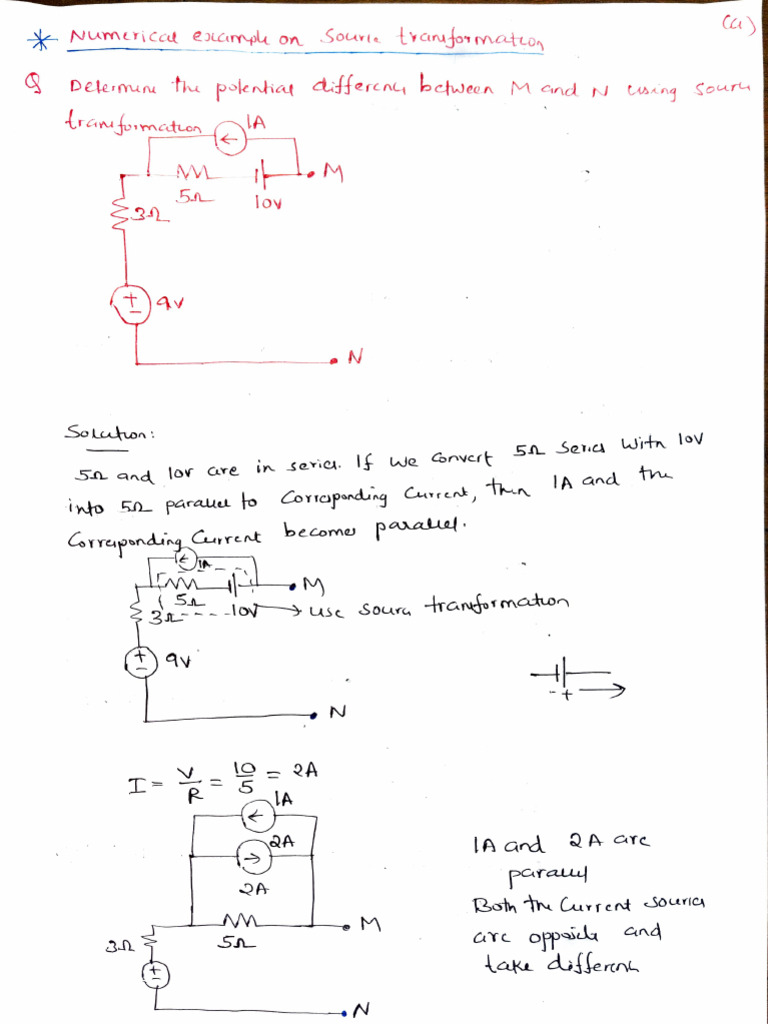 (a)
* Numerical example on source transformation
Q Determine the potential difference between M and N using source
transformation
1A
M
5Ω
10V
3Ω
+
-
9V
N
Solution:
5Ω and 10V are in series. If we convert 5Ω series with 10V
into 5Ω parallel to corresponding current, then 1A and the
corresponding current becomes parallel.
1A
M
5Ω
10V → use source transformation
3Ω
+
-
9V
- +
N
I = V/R = 10/5 = 2A
1A
2A
2A
1A and 2A are
parallel
Both the current sources
are opposide and
take difference
M
5Ω
3Ω
+
-
N